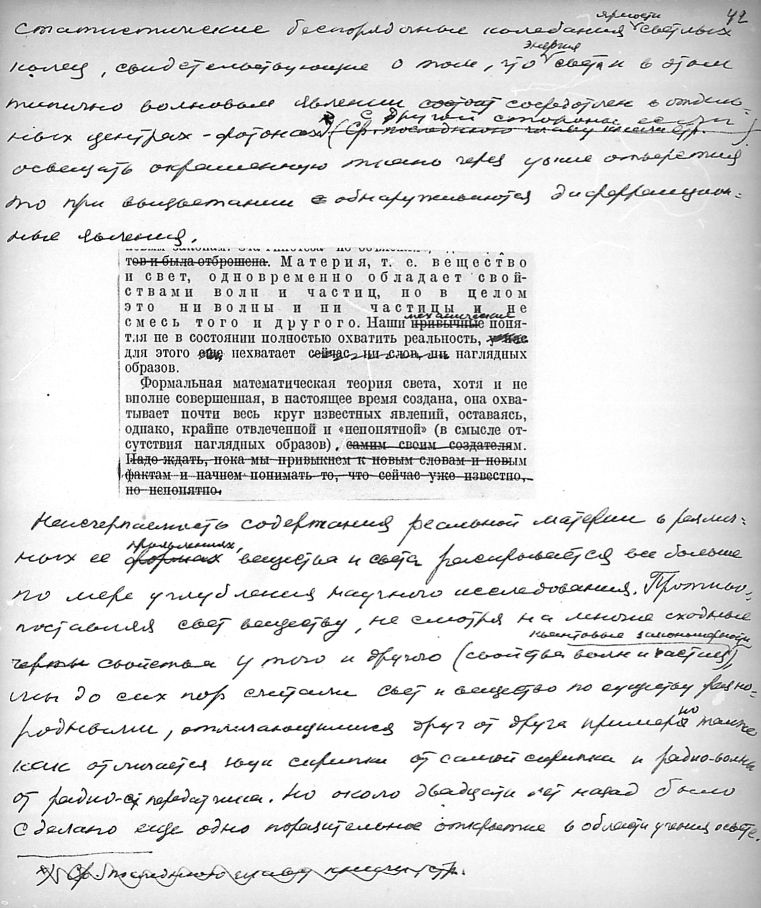 42
яркости
статистические беспорядочные колебания светлых
энергия
колец, свидетельствующие о том, что света и в этом
типично волновом явлении состоит сосредоточен в отдель-
с другой стороны если
ных центрах-фотонах x) (Ср. последнюю главу книги стр. )
освещать окрашенную ткань через узкие отверстия
то при выцветании обнаруживаются диффракцион-
ные явления.
тов и была отброшена. Материя, т. е. вещество
и свет, одновременно обладает свой-
ствами волн и частиц, но в целом
это ни волны и ни частицы и не
механические
смесь того и другого. Наши привычные поня-
тия не в состоянии полностью охватить реальность,
для этого еще нехватает сейчас ни слов, ни наглядных
образов.
Формальная математическая теория света, хотя и не
вполне совершенная, в настоящее время создана, она охва-
тывает почти весь круг известных явлений, оставаясь,
однако, крайне отвлеченной и «непонятной» (в смысле от-
сутствия наглядных образов), самим своим создателям.
Надо ждать, пока мы привыкнем к новым словам и новым
фактам и начнем понимать то, что сейчас уже известно,
но непонятно.
Неисчерпаемость содержания реальной материи в различ-
проявлениях,
ных ее формах вещества и света раскрывается все больше
по мере углубления научного исследования. Противо-
поставляя свет веществу, не смотря на многие сходные
квантовые закономерности
черты свойства у того и другого (свойства волн и частиц),
мы до сих пор считали свет и вещество по существу разно-
но
родными, отличающимися друг от друга примерно также
как отличается звук скрипки от самой скрипки и радио-волны
от радио-передатчика. Но около двадцати лет назад было
сделано еще одно поразительное открытие в области учения о свете.
x) Ср. последнюю главу книги стр.